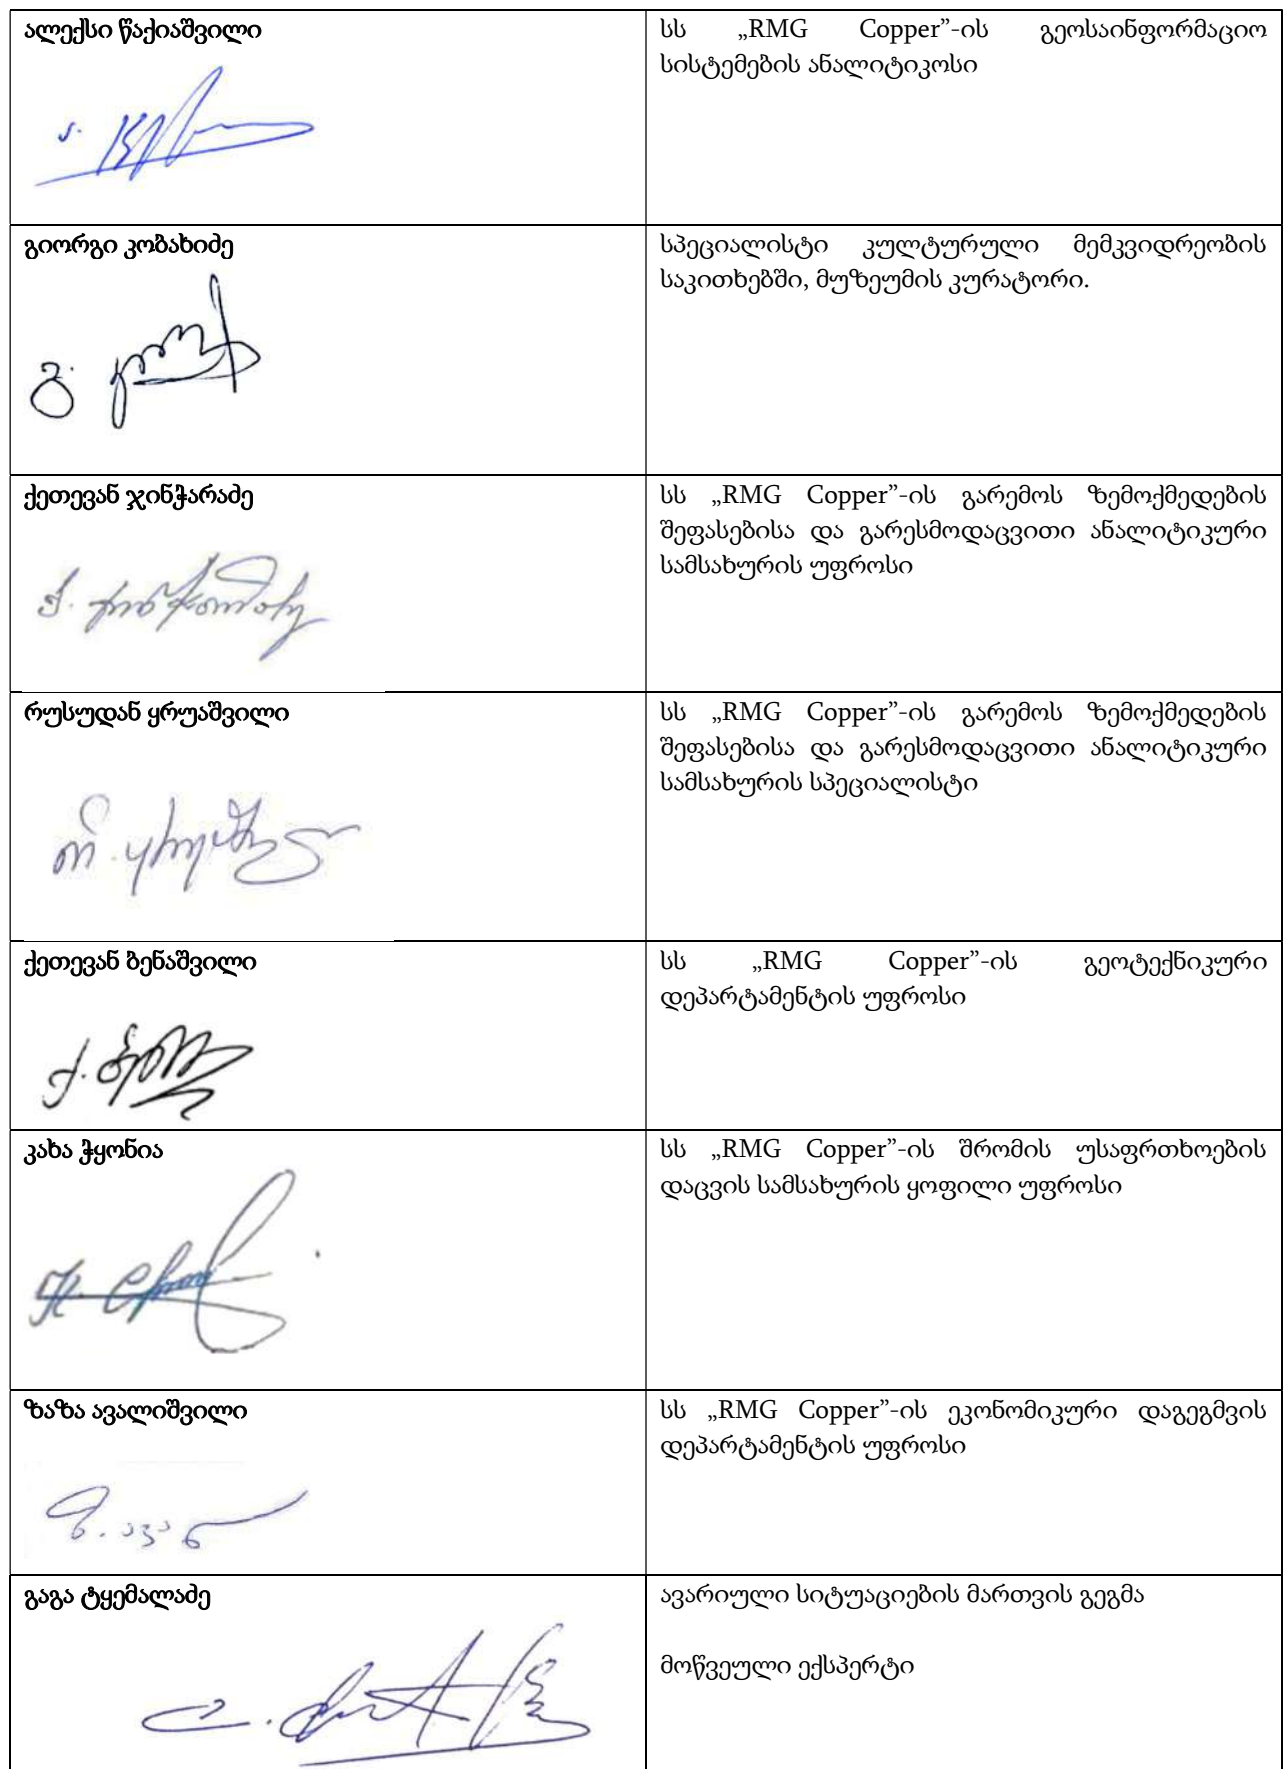 ალექსი წაქიაშვილი
სს „RMG Copper”-ის გეოსაინფორმაციო
სისტემების ანალიტიკოსი
გიორგი კობახიძე
სპეციალისტი კულტურული მემკვიდრეობის
საკითხებში, მუზეუმის კურატორი.
ქეთევან ჯინჭარაძე
სს „RMG Copper”-ის გარემოს ზემოქმედების
შეფასებისა და გარესმოდაცვითი ანალიტიკური
სამსახურის უფროსი
რუსუდან ყრუაშვილი
სს „RMG Copper”-ის გარემოს ზემოქმედების
შეფასებისა და გარესმოდაცვითი ანალიტიკური
სამსახურის სპეციალისტი
ქეთევან ბენაშვილი
სს „RMG Copper”-ის გეოტექნიკური
დეპარტამენტის უფროსი
კახა ჭყონია
სს „RMG Copper”-ის შრომის უსაფრთხოების
დაცვის სამსახურის ყოფილი უფროსი
ზაზა ავალიშვილი
სს „RMG Copper”-ის ეკონომიკური დაგეგმვის
დეპარტამენტის უფროსი
გაგა ტყემალაძე
ავარიული სიტუაციების მართვის გეგმა
მოწვეული ექსპერტი